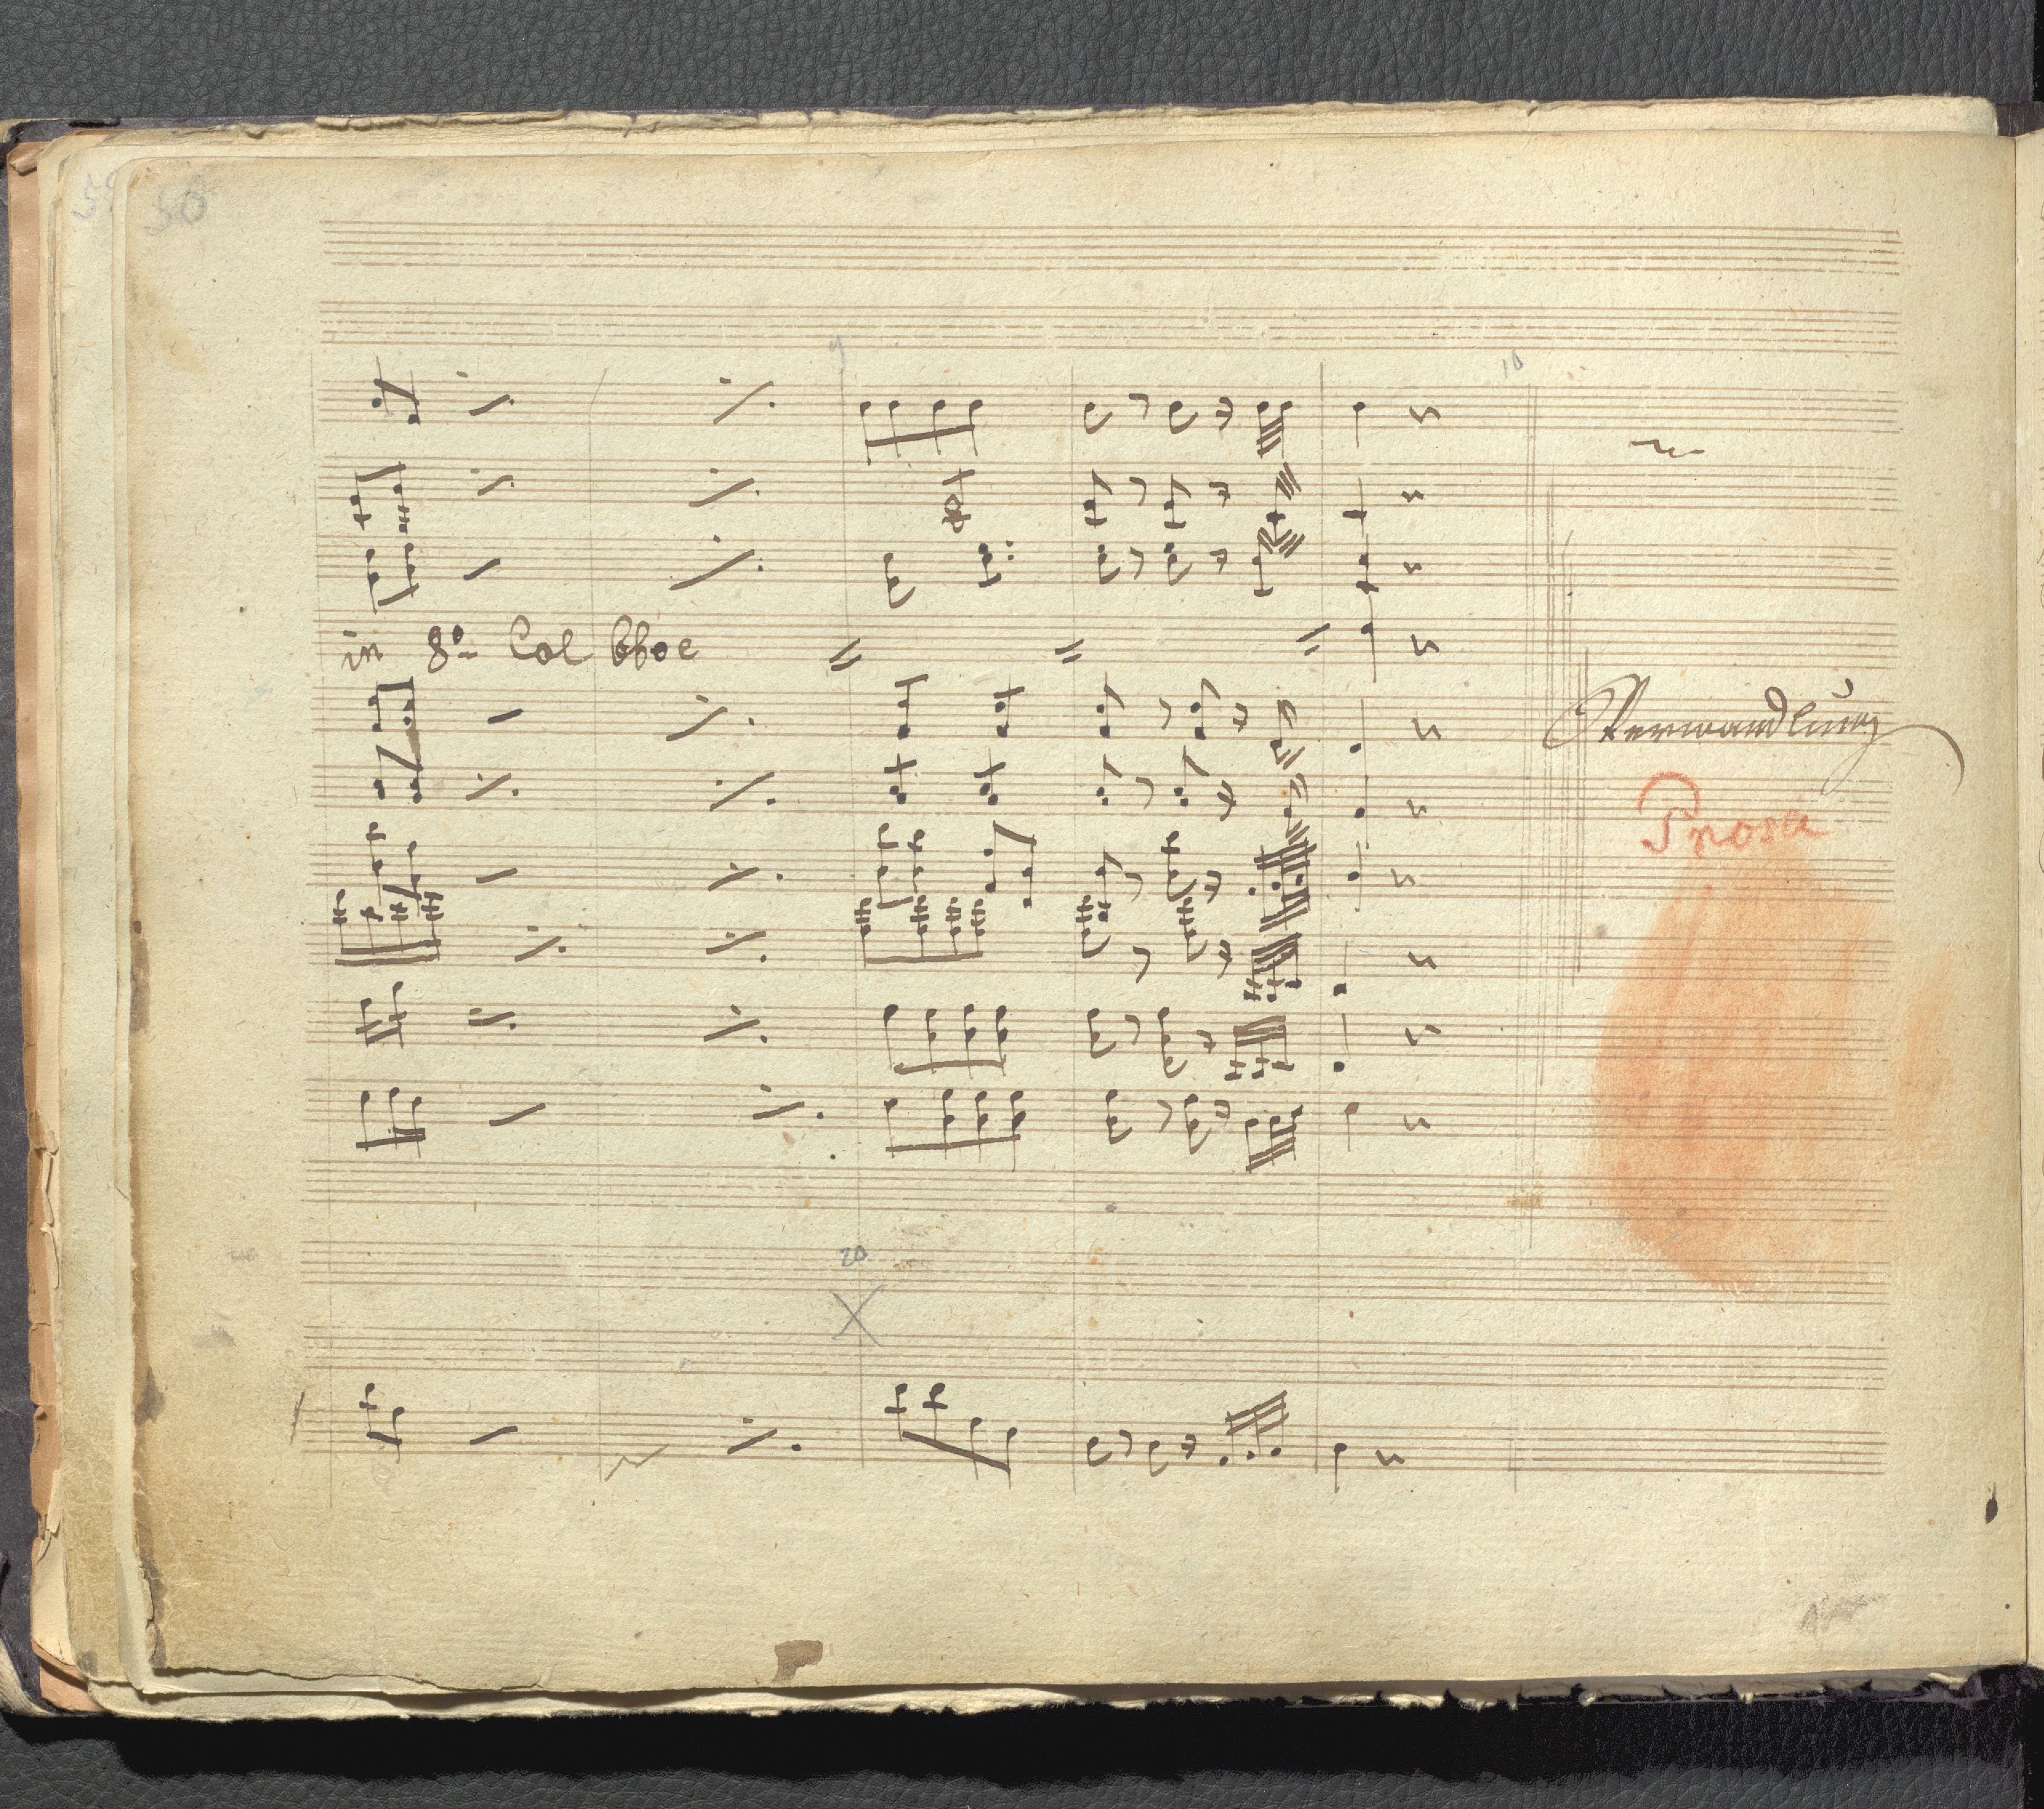 56
9
10
in 8º Col Oboe
Verwandlung
Prosa
20
X